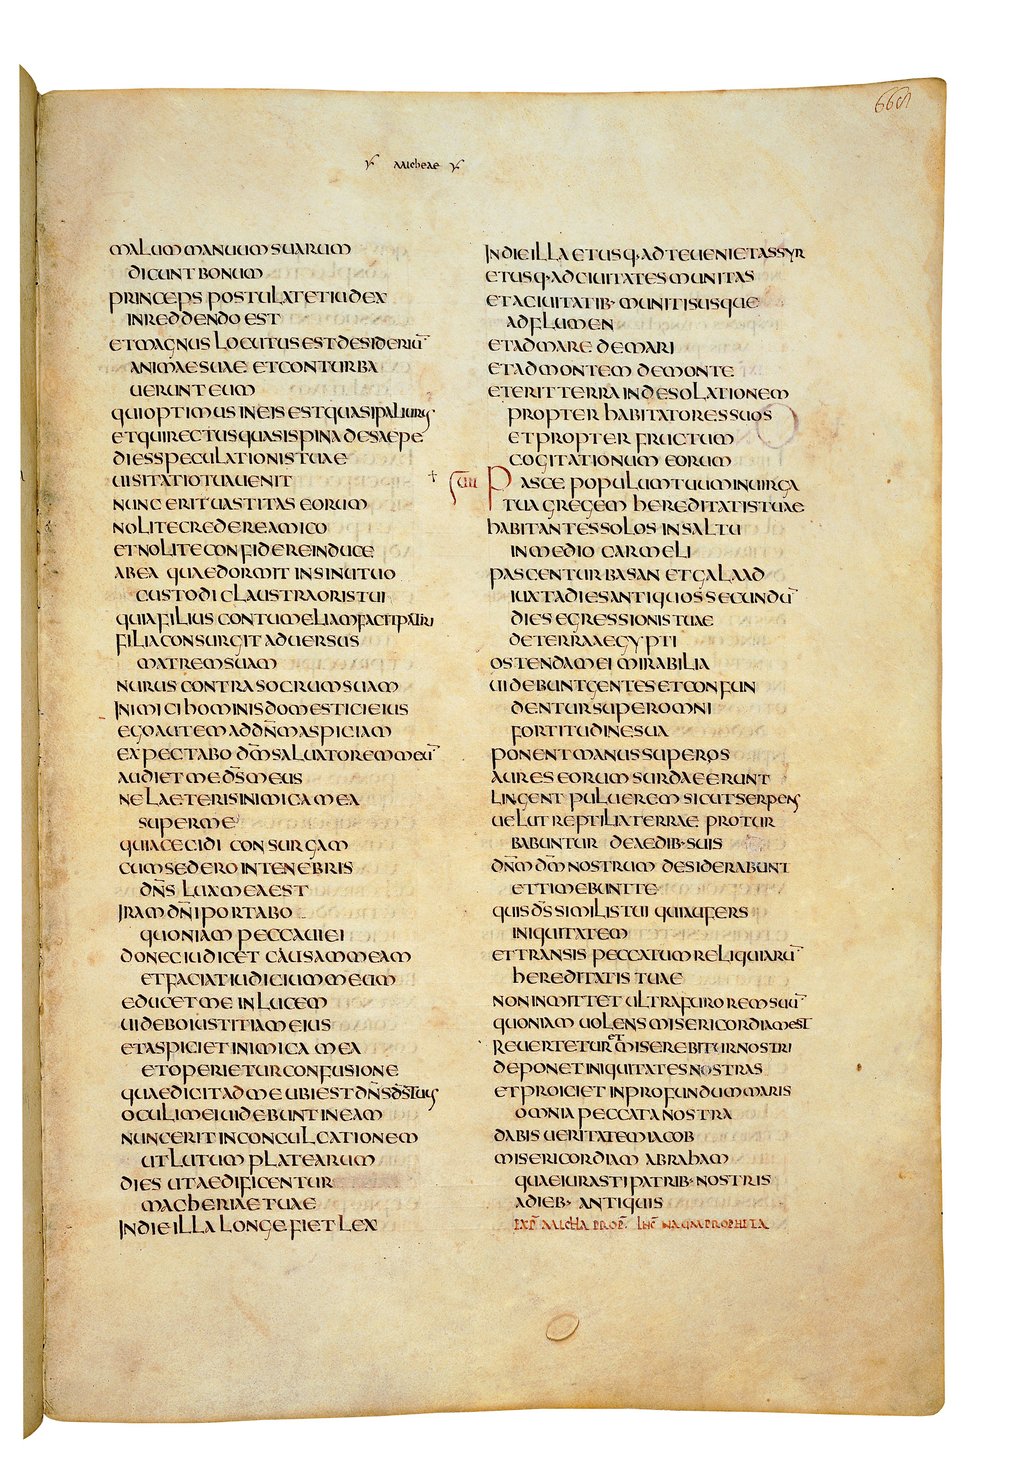 668
micheae
malum manuum suarum
dicunt bonum
princeps postulat et iudex
in reddendo est
et magnus locutus est desideriū
animae suae et conturba
uerunt eum
qui optimus in eis est quasi paliurus
et qui rectus quasi spina de saepe
dies speculationis tuae
uisitatio tua uenit
nunc erit uastitas eorum
nolite credere amico
et nolite confidere in duce
ab ea quae dormit in sinu tuo
custodi claustra oris tui
quia filius contumeliam facit patri
filia consurgit aduersus
matrem suam
nurus contra socrum suam
inimici hominis domestici eius
ego autem ad dn̄m aspiciam
expectabo dm̄ saluatorem meū
audiet me ds̄ meus
ne laeteris inimica mea
super me
quia cecidi consurgam
cum sedero in tenebris
dn̄s lux mea est
iram dn̄i portabo
quoniam peccaui ei
donec iudicet causam meam
et faciat iudicium meum
educet me in lucem
uidebo iustitiam eius
et aspiciet inimica mea
et operietur confusione
quae dicit ad me ubi est dn̄s ds̄ tuus
oculi mei uidebunt in eam
nunc erit in conculcationem
ut lutum platearum
dies ut aedificentur
macheriae tuae
in die illa longe fiet lex
in die illa et usq· ad te ueniet assyr
et usq· ad ciuitates munitas
et a ciuitatib· munitis usque
ad flumen
et ad mare de mari
et ad montem de monte
et erit terra in desolationem
propter habitatores suos
et propter fructum
cogitationum eorum
uii Pasce populum tuum in uirga
tua gregem hereditatis tuae
habitantes solos in saltu
in medio carmeli
pascentur basan et galaad
iuxta dies antiquos secundū
dies egressionis tuae
de terra aegypti
ostendam ei mirabilia
uidebunt gentes et confun
dentur super omni
fortitudine sua
ponent manus super os
aures eorum surdae erunt
lingent puluerem sicut serpens
uelut reptilia terrae protur
babuntur de aedib· suis
dn̄m dm̄ nostrum desiderabunt
et timebunt te
quis ds̄ similis tui qui aufers
iniquitatem
et transis peccatum reliquiarū
hereditatis tuae
non inmittet ultra furorem suū
quoniam uolens misericordiam est
reuertetur et miserebitur nostri
deponet iniquitates nostras
et proiciet in profundum maris
omnia peccata nostra
dabis ueritatem iacob
misericordiam abraham
quae iurasti patrib· nostris
a dieb· antiquis
exp̄ micha prop̄. inc̄ naum propheta